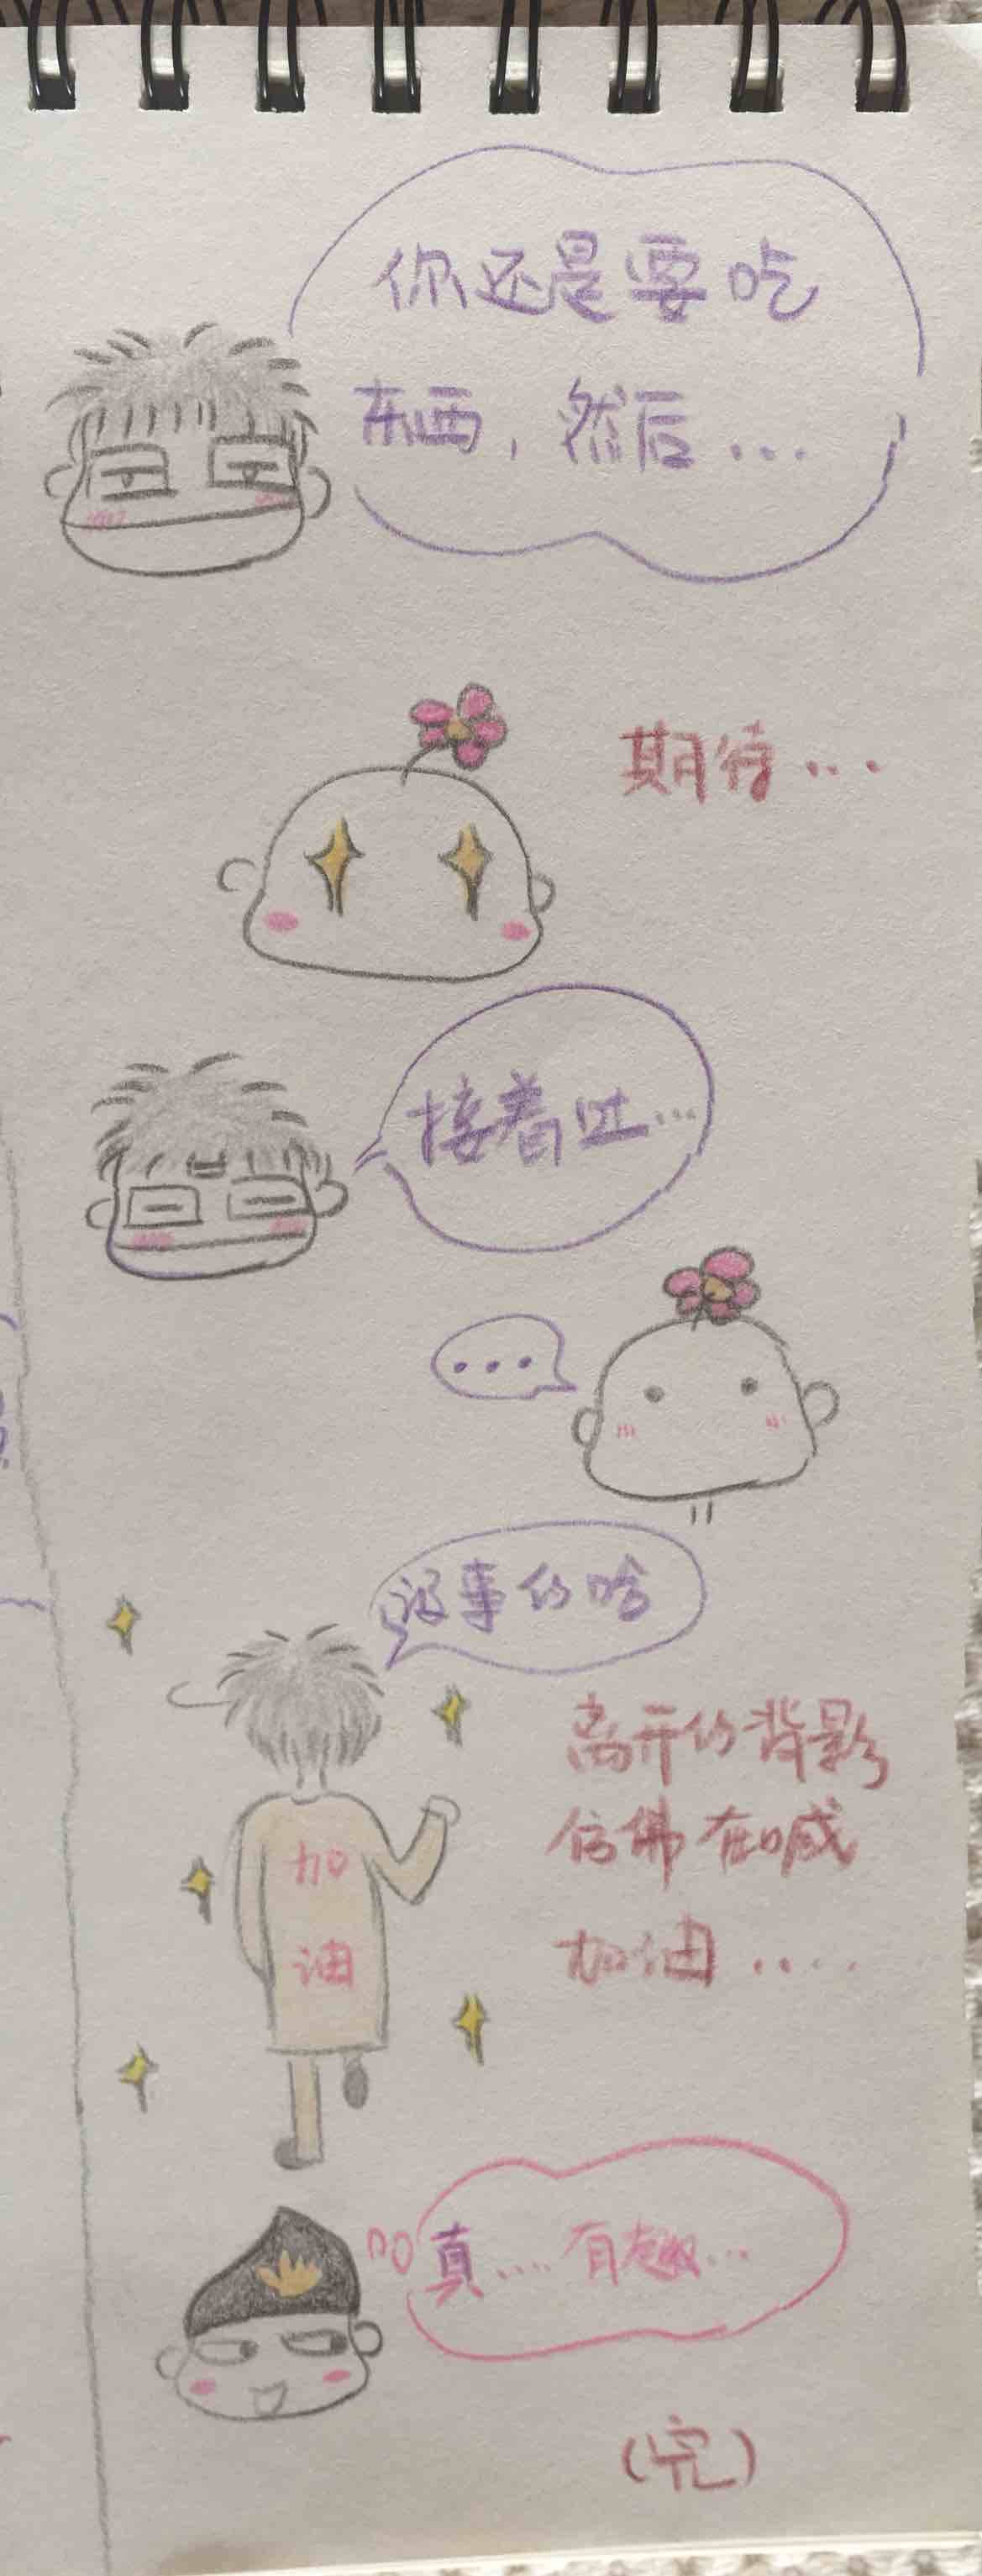 你还是要吃
东西，然后...
期待...
接着吐...
...
没事的哈
加
油
离开的背影
仿佛在喊
加油.....
真.... 有趣...
(完)